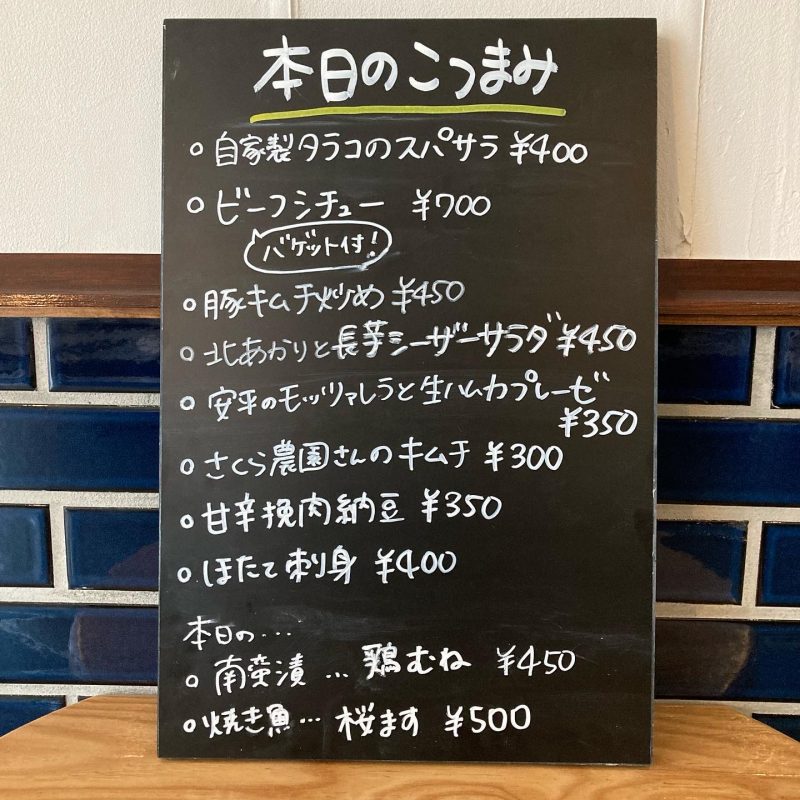 本日のこつまみ
○ 自家製タラコのスパサラ ¥400
○ ビーフシチュー ¥700
バゲット付!
○ 豚キムチ炒め ¥450
○ 北あかりと長芋シーザーサラダ ¥450
○ 安平のモッツァレラと生ハムカプレーゼ
¥350
○ さくら農園さんのキムチ ¥300
○ 甘辛挽肉納豆 ¥350
○ ほたて刺身 ¥400
本日の…
○ 南蛮漬 … 鶏むね ¥450
○ 焼き魚 … 桜ます ¥500